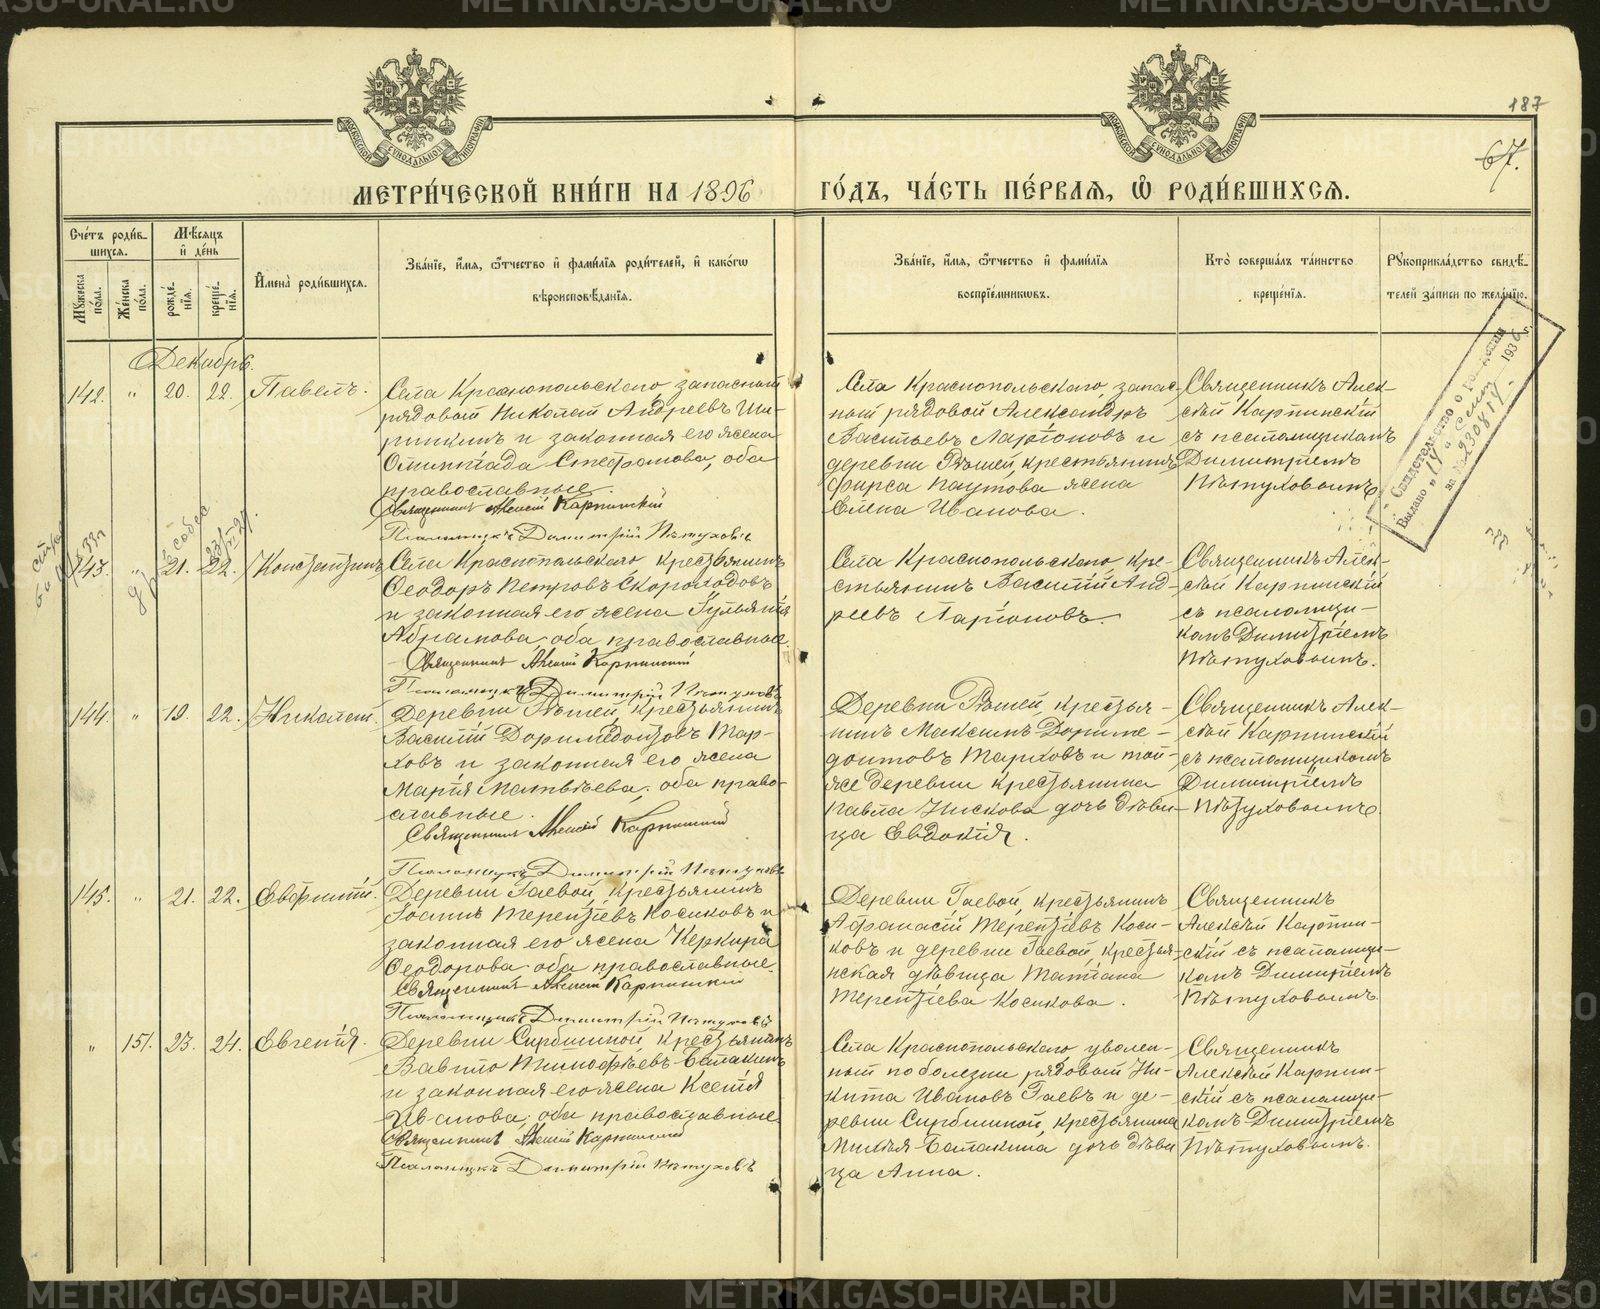 187
67.
МЕТРИ́ЧЕСКОЙ КНИ́ГИ НА 1896 ГО́ДЪ, ЧА́СТЬ ПЕ́РВАЯ, Ѿ РОДИ́ВШИХСѦ.
Сче́тъ роди́в-
шихся.
Мѣ́сяцъ
и҆ де́нь
Мꙋ́жеска
по́ла.
Же́нска
по́ла.
рожде́-
нїя.
креще́-
нїя.
И҆мена̀ роди́вшихся.
Зва́нїе, и҆́мя, ѻ҆́тчество и҆ фами́лїя роди́телей, и҆ како́гѡ
вѣроисповѣ́данїя.
Зва́нїе, и҆́мя, ѻ҆́тчество и҆ фами́лїя
воспрїе́мникѡвъ.
Кто̀ соверша́лъ та́инство
креще́нїя.
Рꙋкоприкла́дство свидѣ́-
телей за́писи по жела́нїю.
Декабрь.
142. " 20. 22. Павелъ.
Села Краснопольскаго, запасный
рядовой Николай Андреевъ Ши-
ринкинъ и законная его жена
Олимпіада Стефанова, оба
православные.
Священникъ Алексій Карпинскій
Псаломщикъ Димитрій Пѣтуховъ
Села Краснопольскаго, запас-
ный рядовой Александръ
Васильевъ Ларіоновъ и
деревни Рѣшей, крестьянина
Фирса Паутова жена
Елена Иванова.
Священникъ Алек-
сѣй Карпинскій
съ псаломщикомъ
Димитріемъ
Пѣтуховымъ.
Свидѣтельство о рожденіи
Выдано
193
за №
143. " 21. 22. Константинъ
Села Краснопольскаго, крестьянинъ
Ѳеодоръ Петровъ Скороходовъ
и законная его жена Гульянія
Абрамова, оба православные.
Священникъ Алексій Карпинскій
Псаломщикъ Димитрій Пѣтуховъ
Села Краснопольскаго, кре-
стьянинъ Василій Анд-
реевъ Ларіоновъ.
Священникъ Алек-
сѣй Карпинскій
съ псаломщи-
комъ Димитріемъ
Пѣтуховымъ.
144. " 19. 22. Николай.
Деревни Рѣшей, крестьянинъ
Василій Доримедонтовъ Тар-
ховъ и законная его жена
Марія Матвѣева, оба право-
славные.
Священникъ Алексій Карпинскій
Псаломщикъ Димитрій Пѣтуховъ
Деревни Рѣшей, крестья-
нинъ Максимъ Дориме-
донтовъ Тарховъ и той-
же деревни крестьянина
Павла Нискова дочь дѣви-
ца Евдокія.
Священникъ Алек-
сѣй Карпинскій
съ псаломщикомъ
Димитріемъ
Пѣтуховымъ.
145. " 21. 22. Евфимій.
Деревни Гаевой, крестьянинъ
Іоаннъ Терентіевъ Косиковъ и
законная его жена Керкира
Ѳеодорова, оба православные.
Священникъ Алексій Карпинскій
Псаломщикъ Димитрій Пѣтуховъ
Деревни Гаевой, крестьянинъ
Аѳанасій Терентіевъ Коси-
ковъ и деревни Гаевой, крестья-
нская дѣвица Татіана
Терентіева Косикова.
Священникъ
Алексѣй Карпин-
скій съ псаломщи-
комъ Димитріемъ
Пѣтуховымъ.
" 151. 23. 24. Евгенія.
Деревни Сырбишной, крестьянинъ
Вавило Тимофѣевъ Балакинъ
и законная его жена Ксенія
Иванова, оба православные.
Священникъ Алексій Карпинскій
Псаломщикъ Димитрій Пѣтуховъ
Села Краснопольскаго уволен-
ный по болезни рядовой Ни-
кита Ивановъ Гаевъ и де-
ревни Сырбишной, крестьянина
Михѣя Балакина дочь дѣви
ца Анна.
Священникъ
Алексѣй Карпин-
скій съ псаломщи-
комъ Димитріемъ
Пѣтуховымъ.
METRIKI.GASO-URAL.RU